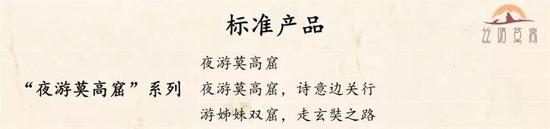 标准产品
丝路莫高
夜游莫高窟
“夜游莫高窟”系列
夜游莫高窟，诗意边关行
游姊妹双窟，走玄奘之路